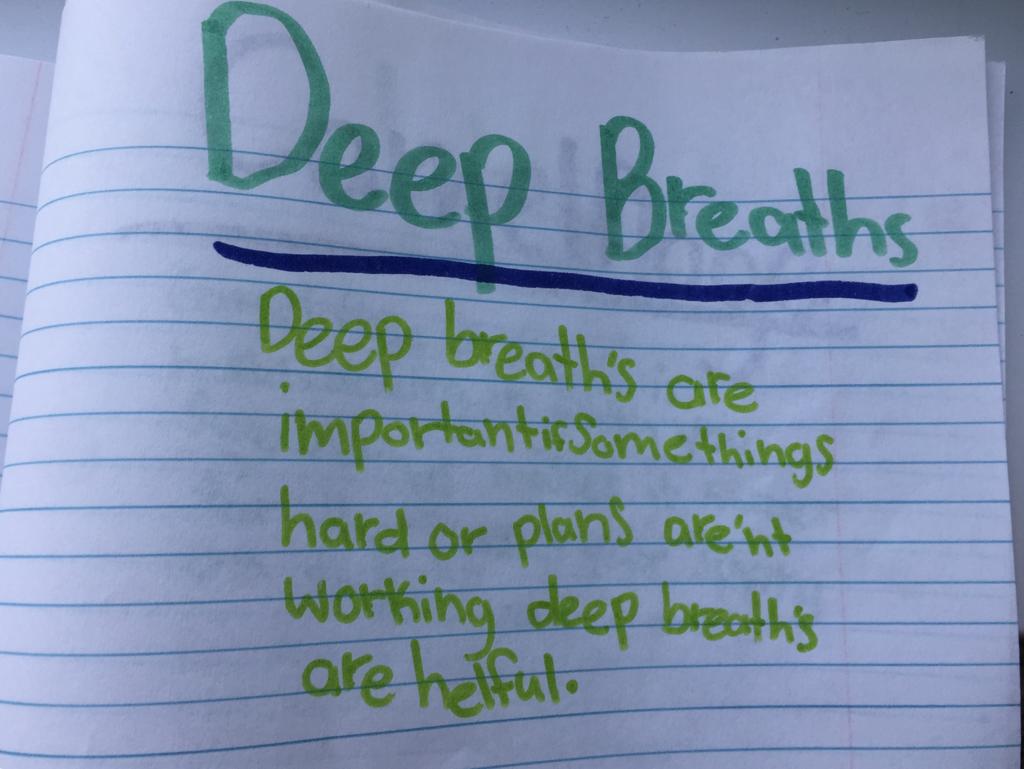 Deep Breaths
Deep breath's are
important if somethings
hard or plans are'nt
working deep breath's
are helful.